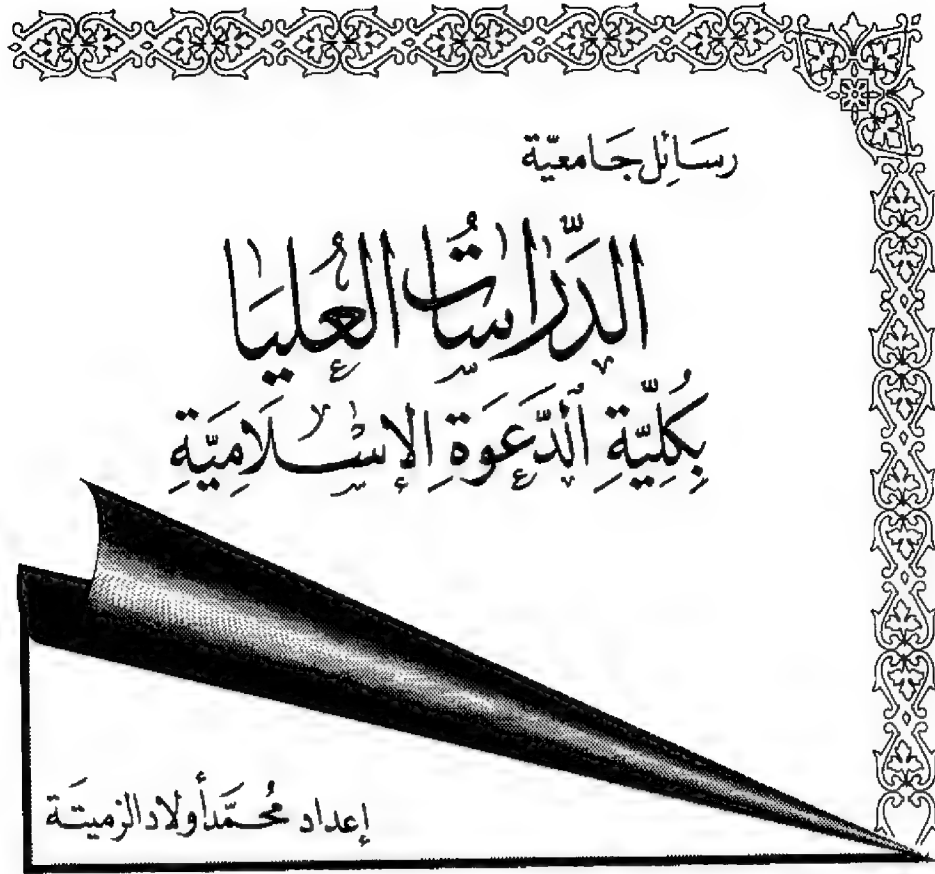 رسَائِل جَامعيّة
الدِّرَاسَاتُ العُليَا
بِكُلِيَّةِ الدَّعوَةِ الإسْلَامِيَّةِ
إعداد محُمَّد أولاد الزميتَة